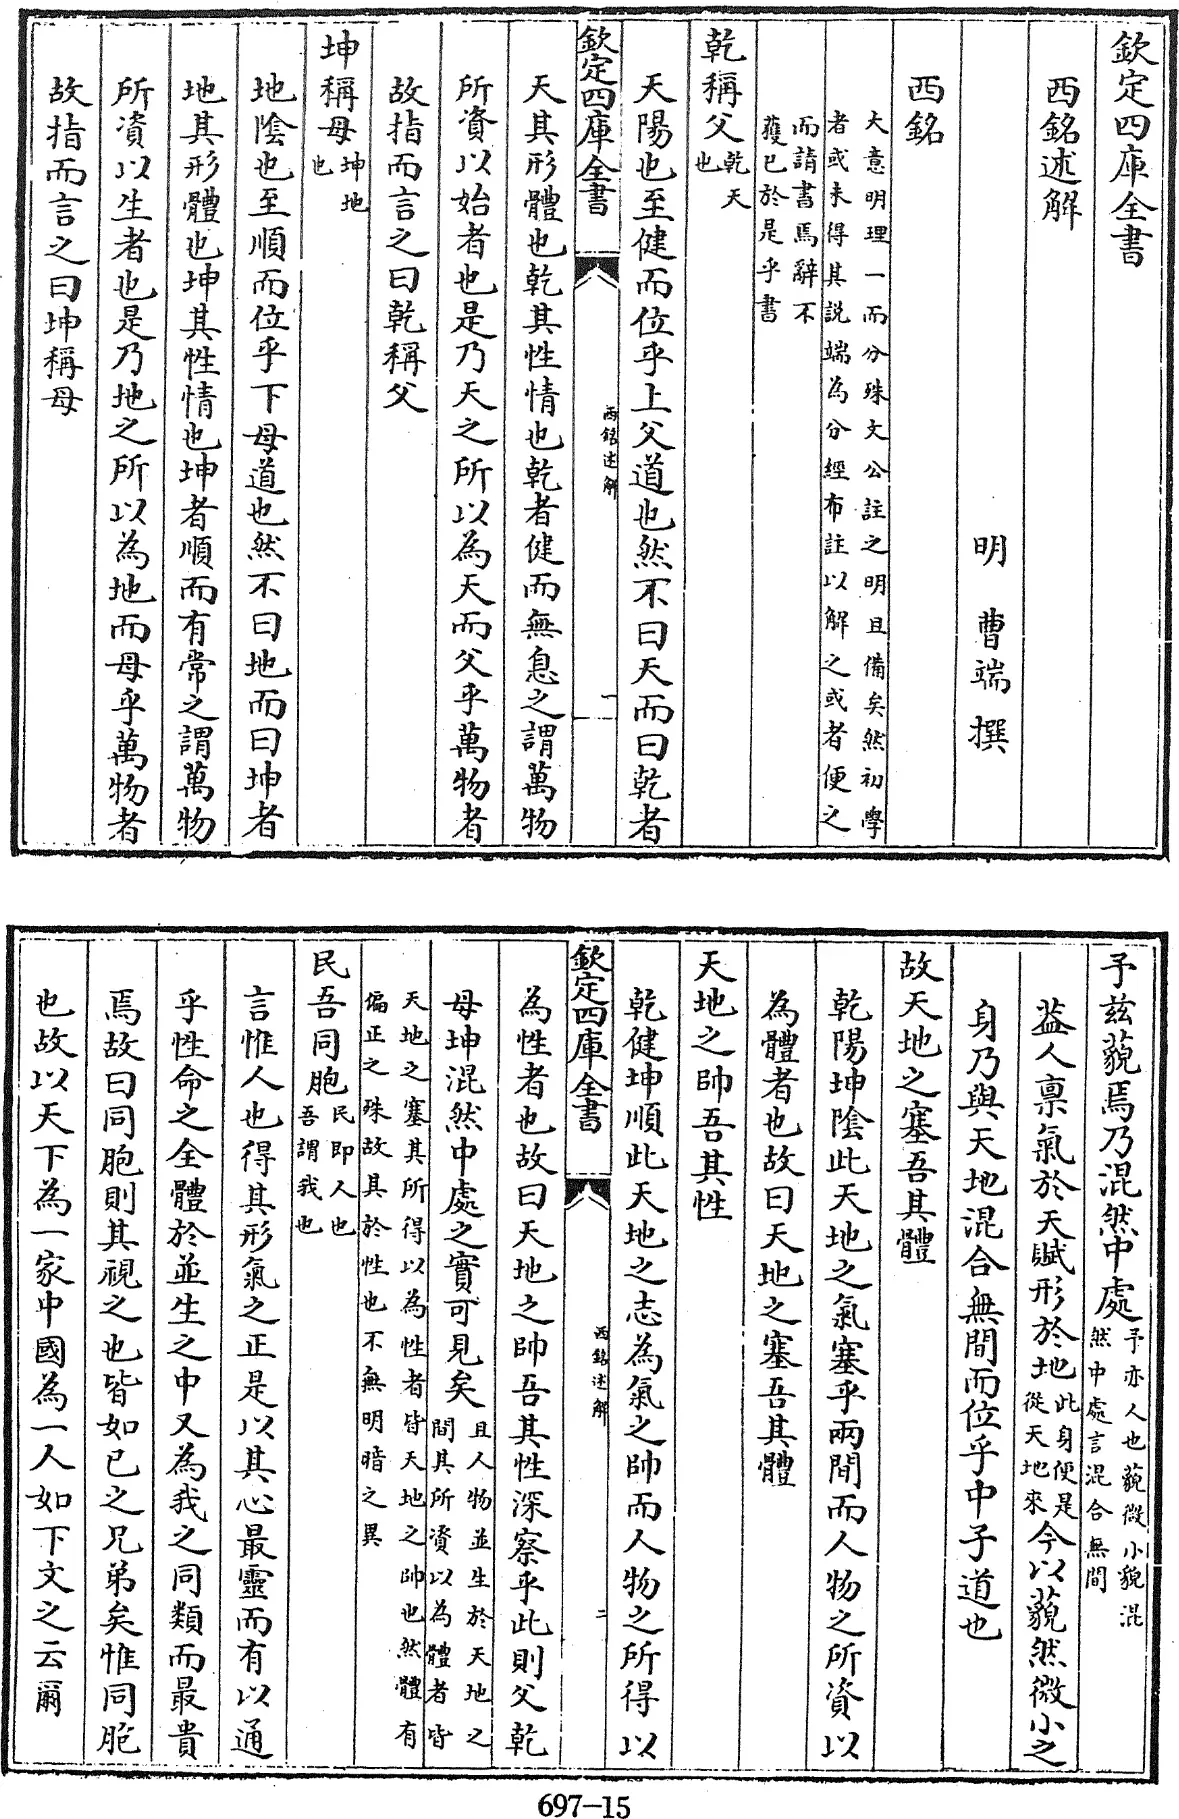 欽定四庫全書
西銘述解
明 曹端 撰
西銘
大意明理一而分殊文公註之明且備矣然初學
者或未得其説端為分經布註以解之或者便之
而請書焉辭不
獲已於是乎書
乾稱父乾天也
天陽也至健而位乎上父道也然不曰天而曰乾者
欽定四庫全書
西銘述解
一
天其形體也乾其性情也乾者健而無息之謂萬物
所資以始者也是乃天之所以為天而父乎萬物者
故指而言之曰乾稱父
坤稱母坤地也
地陰也至順而位乎下母道也然不曰地而曰坤者
地其形體也坤其性情也坤者順而有常之謂萬物
所資以生者也是乃地之所以為地而母乎萬物者
故指而言之曰坤稱母
予茲藐焉乃混然中處予亦人也藐微小貌混然中處言混合無間
葢人禀氣於天賦形於地此身便是從天地來今以藐然微小之
身乃與天地混合無間而位乎中子道也
故天地之塞吾其體
乾陽坤陰此天地之氣塞乎兩間而人物之所資以
為體者也故曰天地之塞吾其體
天地之帥吾其性
乾健坤順此天地之志為氣之帥而人物之所得以
欽定四庫全書
西銘述解
二
為性者也故曰天地之帥吾其性深察乎此則父乾
母坤混然中處之實可見矣且人物並生於天地之間其所資以為體者皆
天地之塞其所得以為性者皆天地之帥也然體有
偏正之殊故其於性也不無明暗之異
民吾同胞民即人也吾謂我也
言惟人也得其形氣之正是以其心最靈而有以通
乎性命之全體於並生之中又為我之同類而最貴
焉故曰同胞則其視之也皆如已之兄弟矣惟同胞
也故以天下為一家中國為一人如下文之云爾
697-15